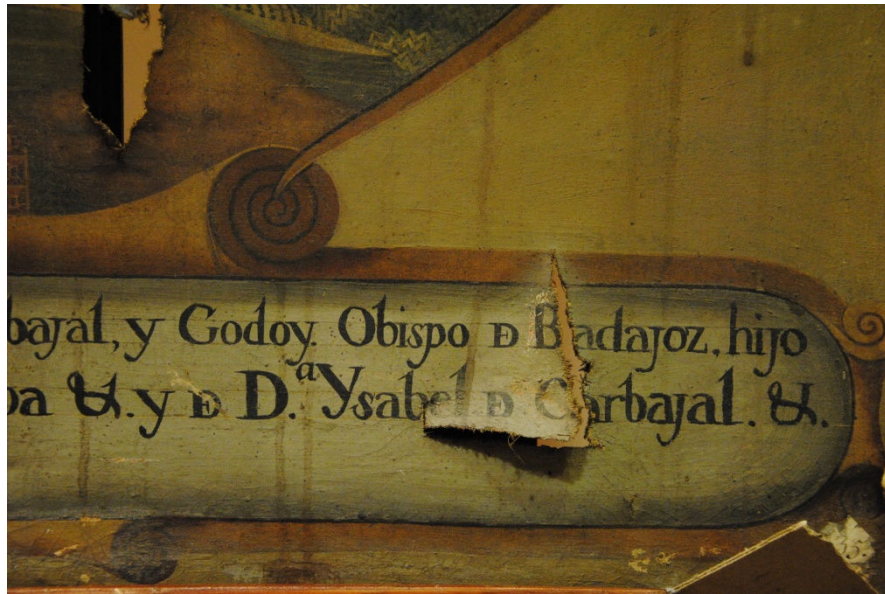 bajal, y Godoy. Obispo Đ Badajoz, hijo
ba &. y Đ D.ª Ysabel Đ Carbajal. &.